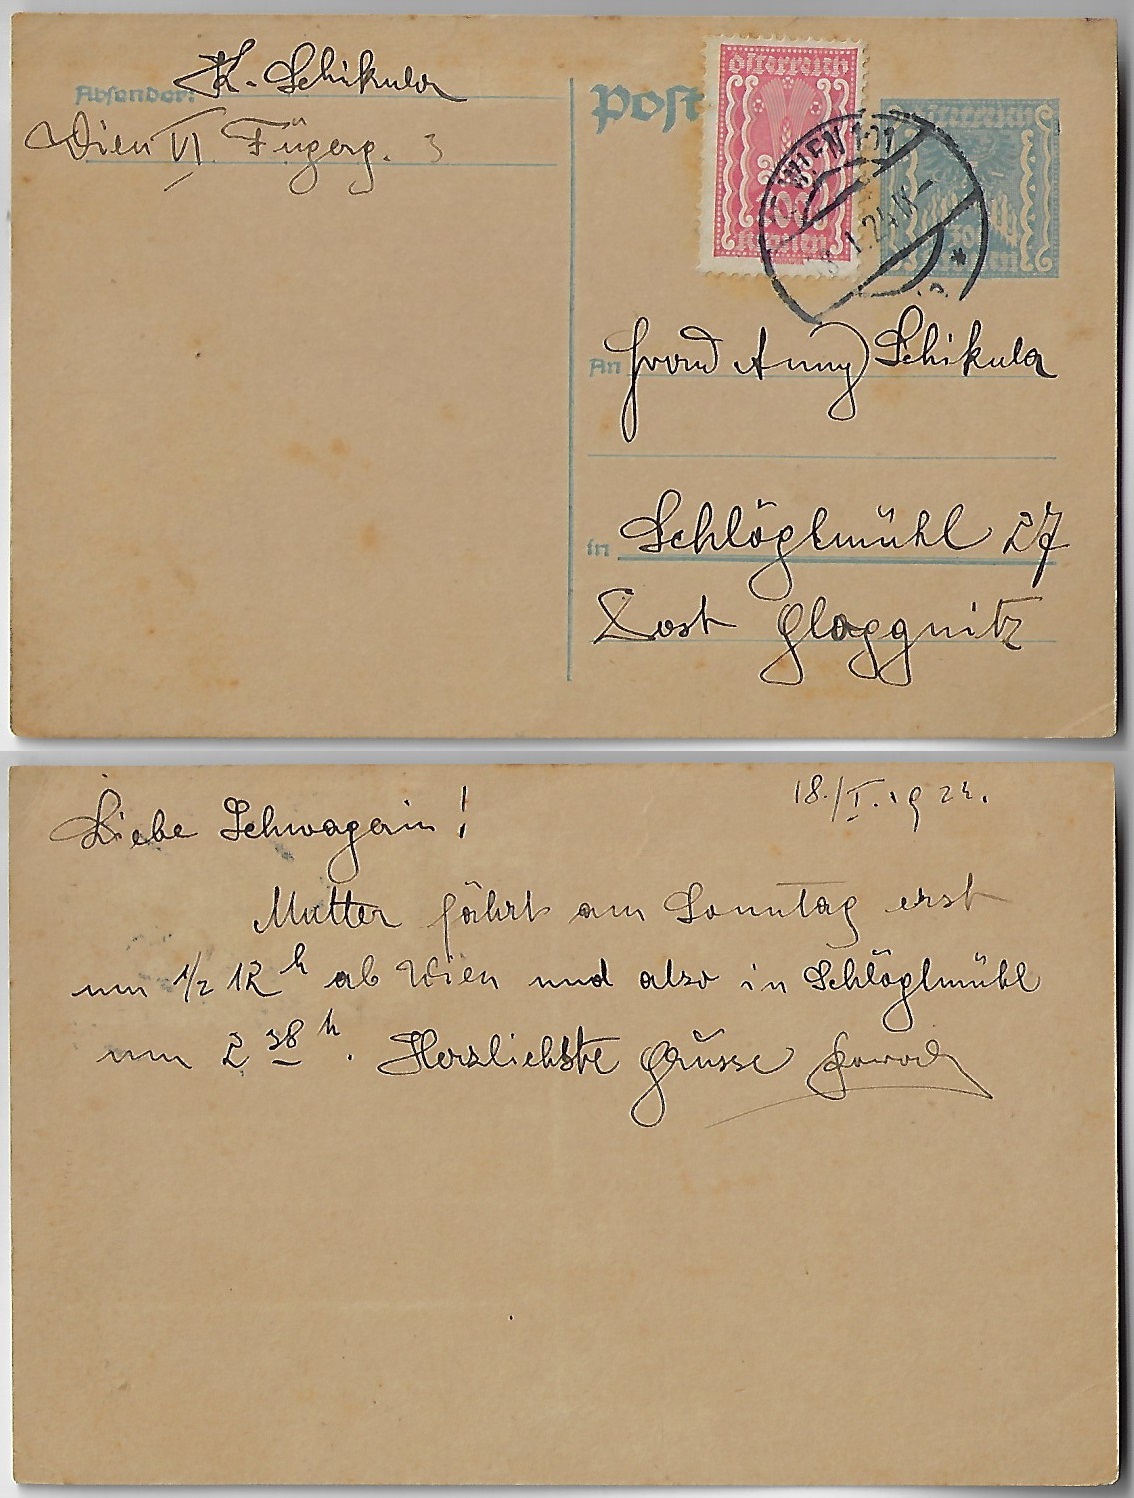 Absender:
K. Schikula
Wien VI. Fügerg. 3
Post
Österreich
Kronen
WIEN 101
1.24
An
Anny Schikula
in Schlöglmühl 27
Post Gloggnitz
18./I. 1924.
Liebe Schwägerin!
Mutter fährt am Sonntag erst
um 1/2 12 h ab Wien und also in Schlöglmühl
um 2 38 h. Herzlichste Grüsse